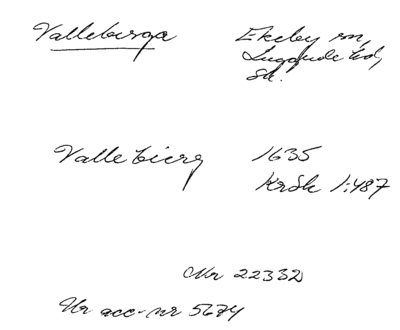 Valleberga Ekeby sn,
Luggude hd,
Sk.
Vallebierg 1635
KrSk 1:487
Nr 22332
Ur acc-nr 5674